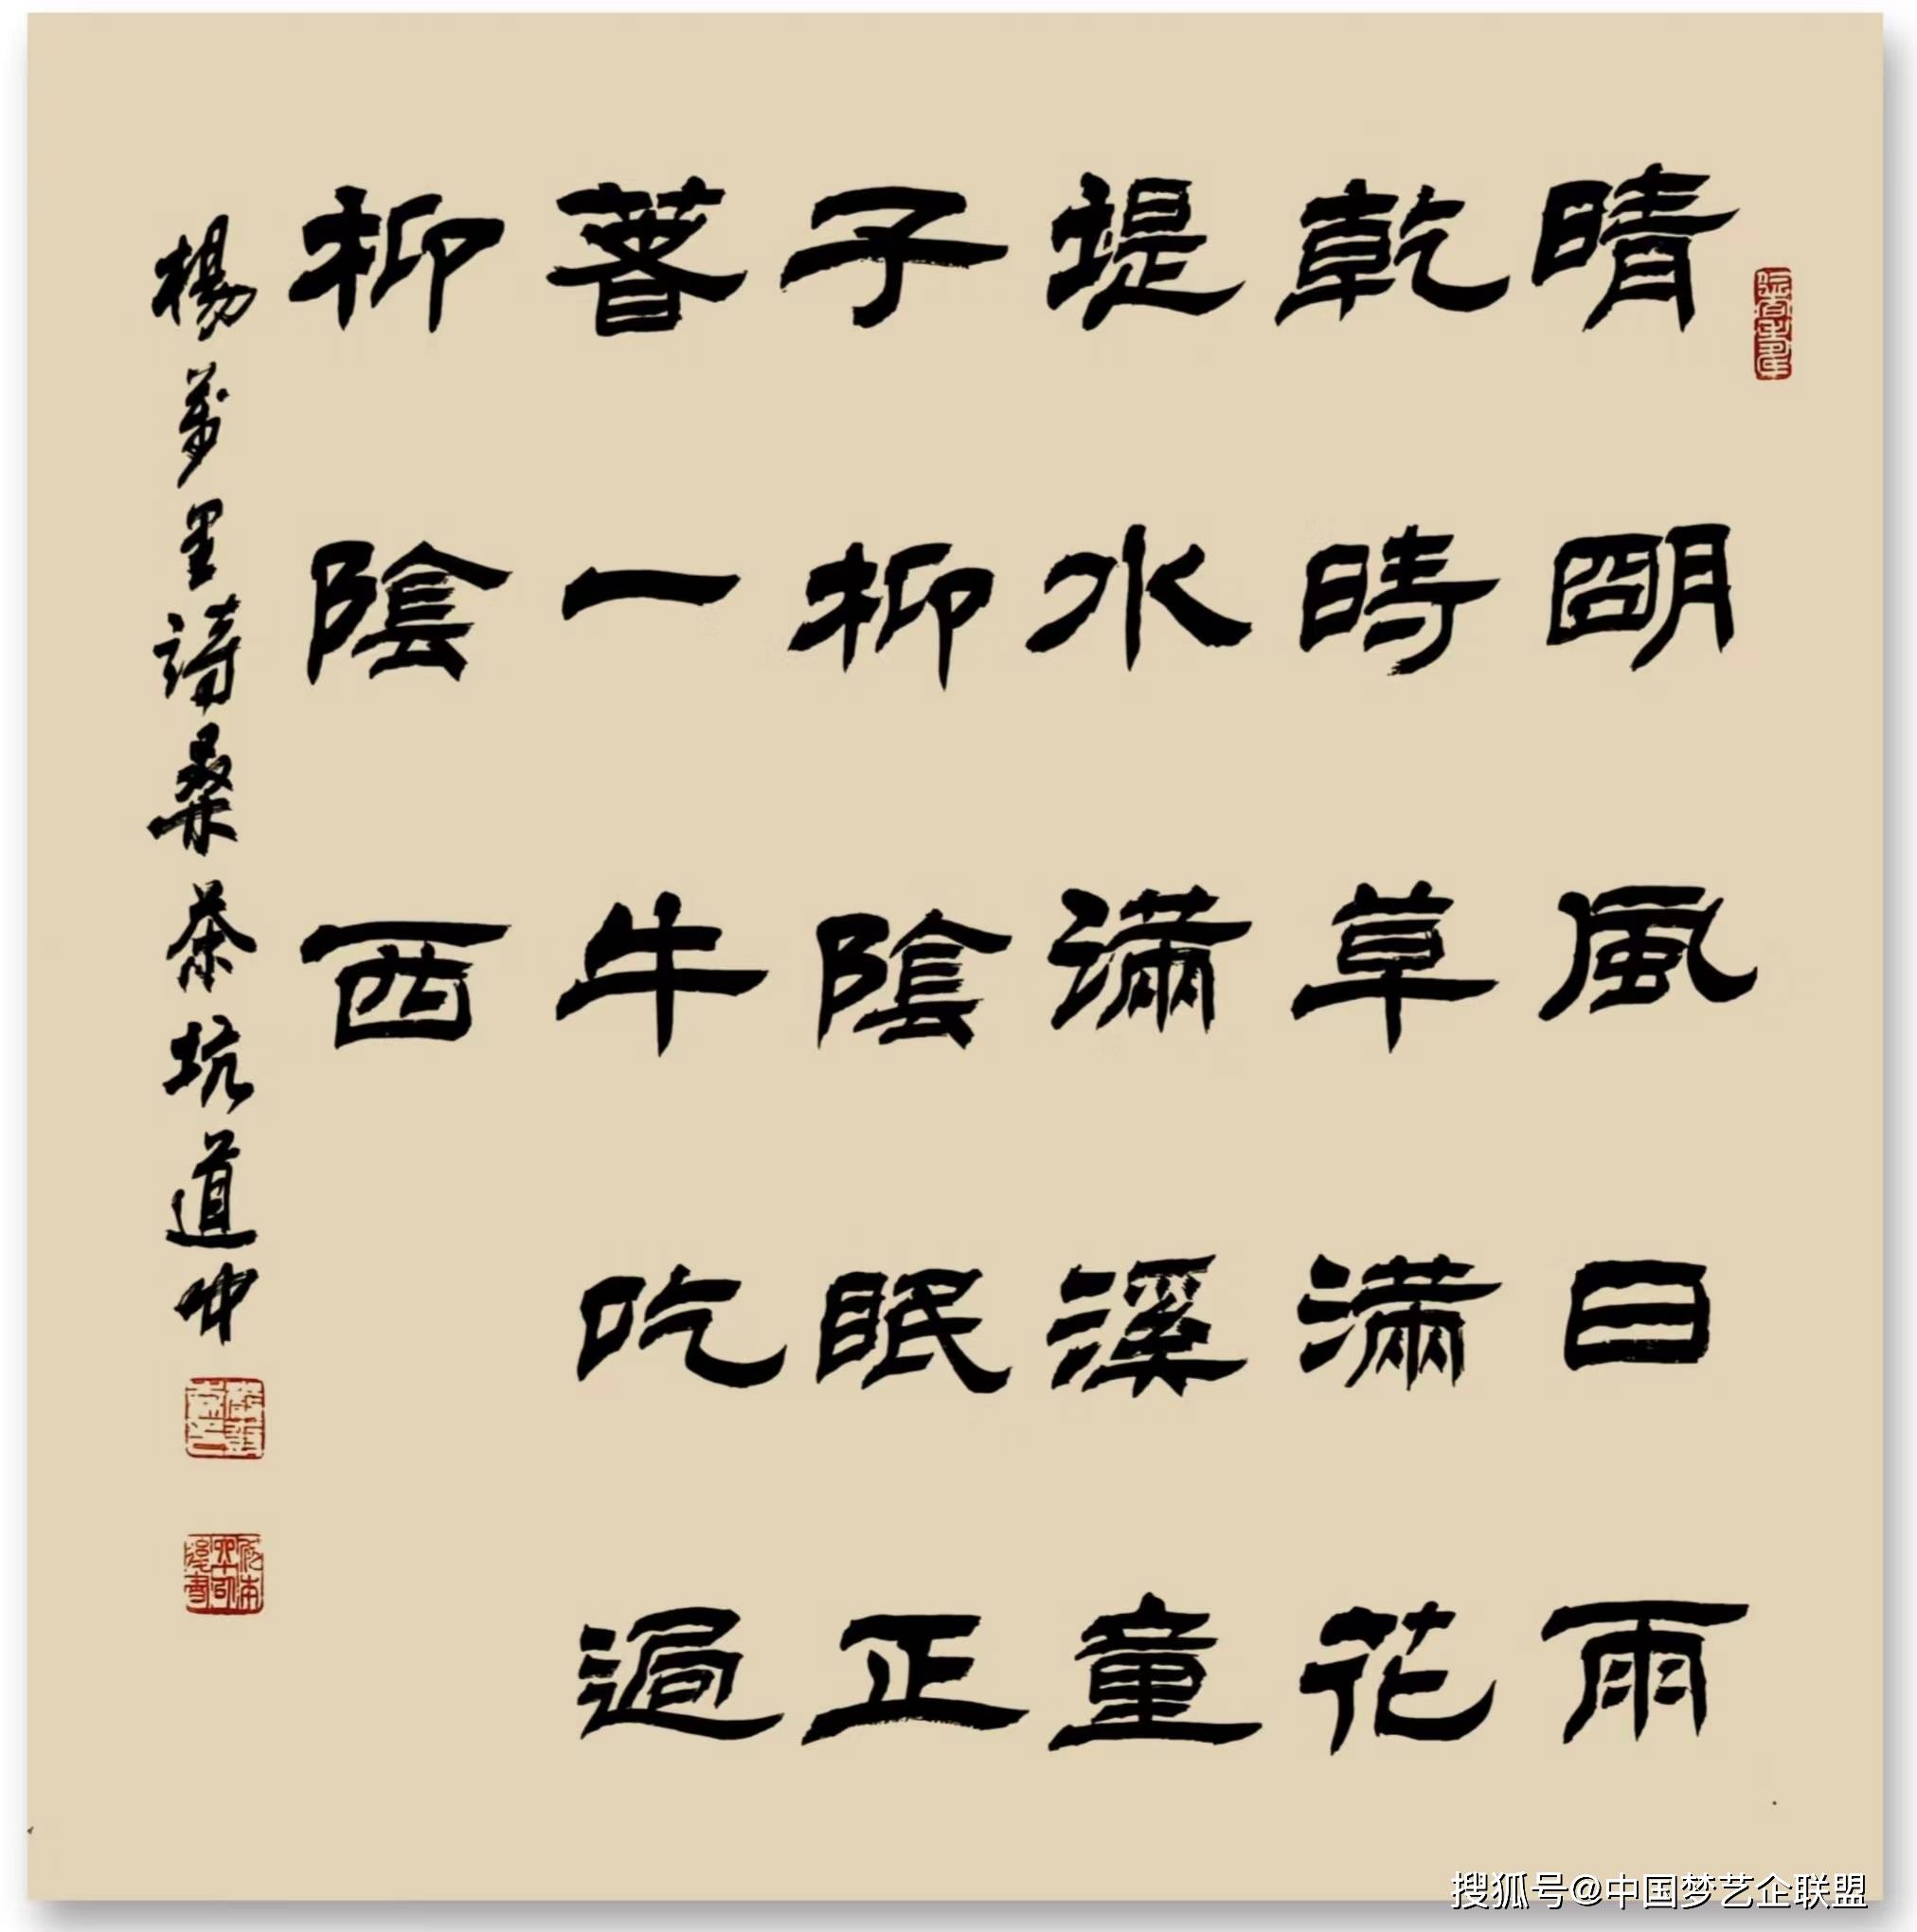 晴明風日雨
乾時草滿花
堤水滿溪童
子柳陰眠正
著一牛吃過
柳陰西
楊萬里詩桑茶坑道中
搜狐号@中国梦艺企联盟